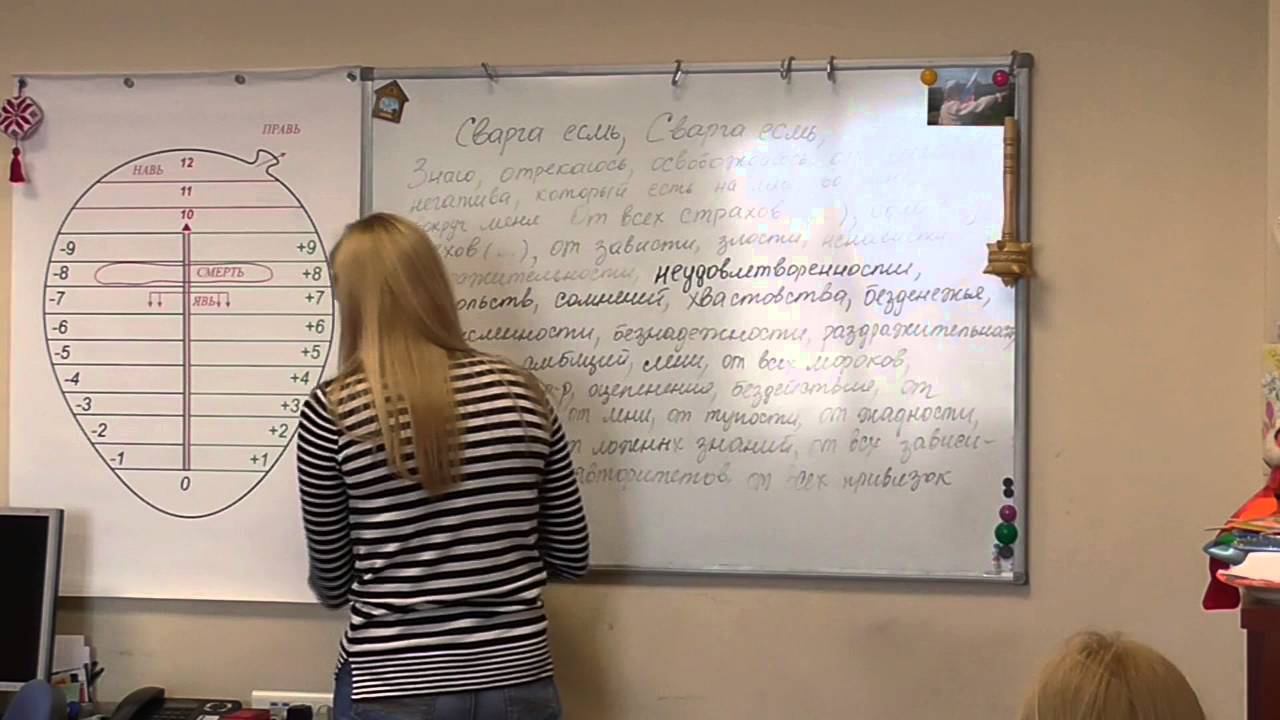 ПРАВЬ
НАВЬ 12
11
10
-9 +9
-8 СМЕРТЬ +8
-7 ЯВЬ +7
-6 +6
-5 +5
-4 +4
-3 +3
-2 +2
-1 +1
0
Сварга есмь, Сварга есмь,
Знаю, отрекаюсь, освобождаюсь
негатива, который есть на
вокруг меня от всех страхов
(...), от зависти, злости, ненависти
неудовлетворенности,
сомнений, хвастовства, безденежья,
безнадежности, раздражительности
амбиций, лени, от всех мороков,
оцепенения, бездействие, от
от лени, от тупости, от жадности,
ложных знаний, от всех зависи-
авторитетов, от всех привязок